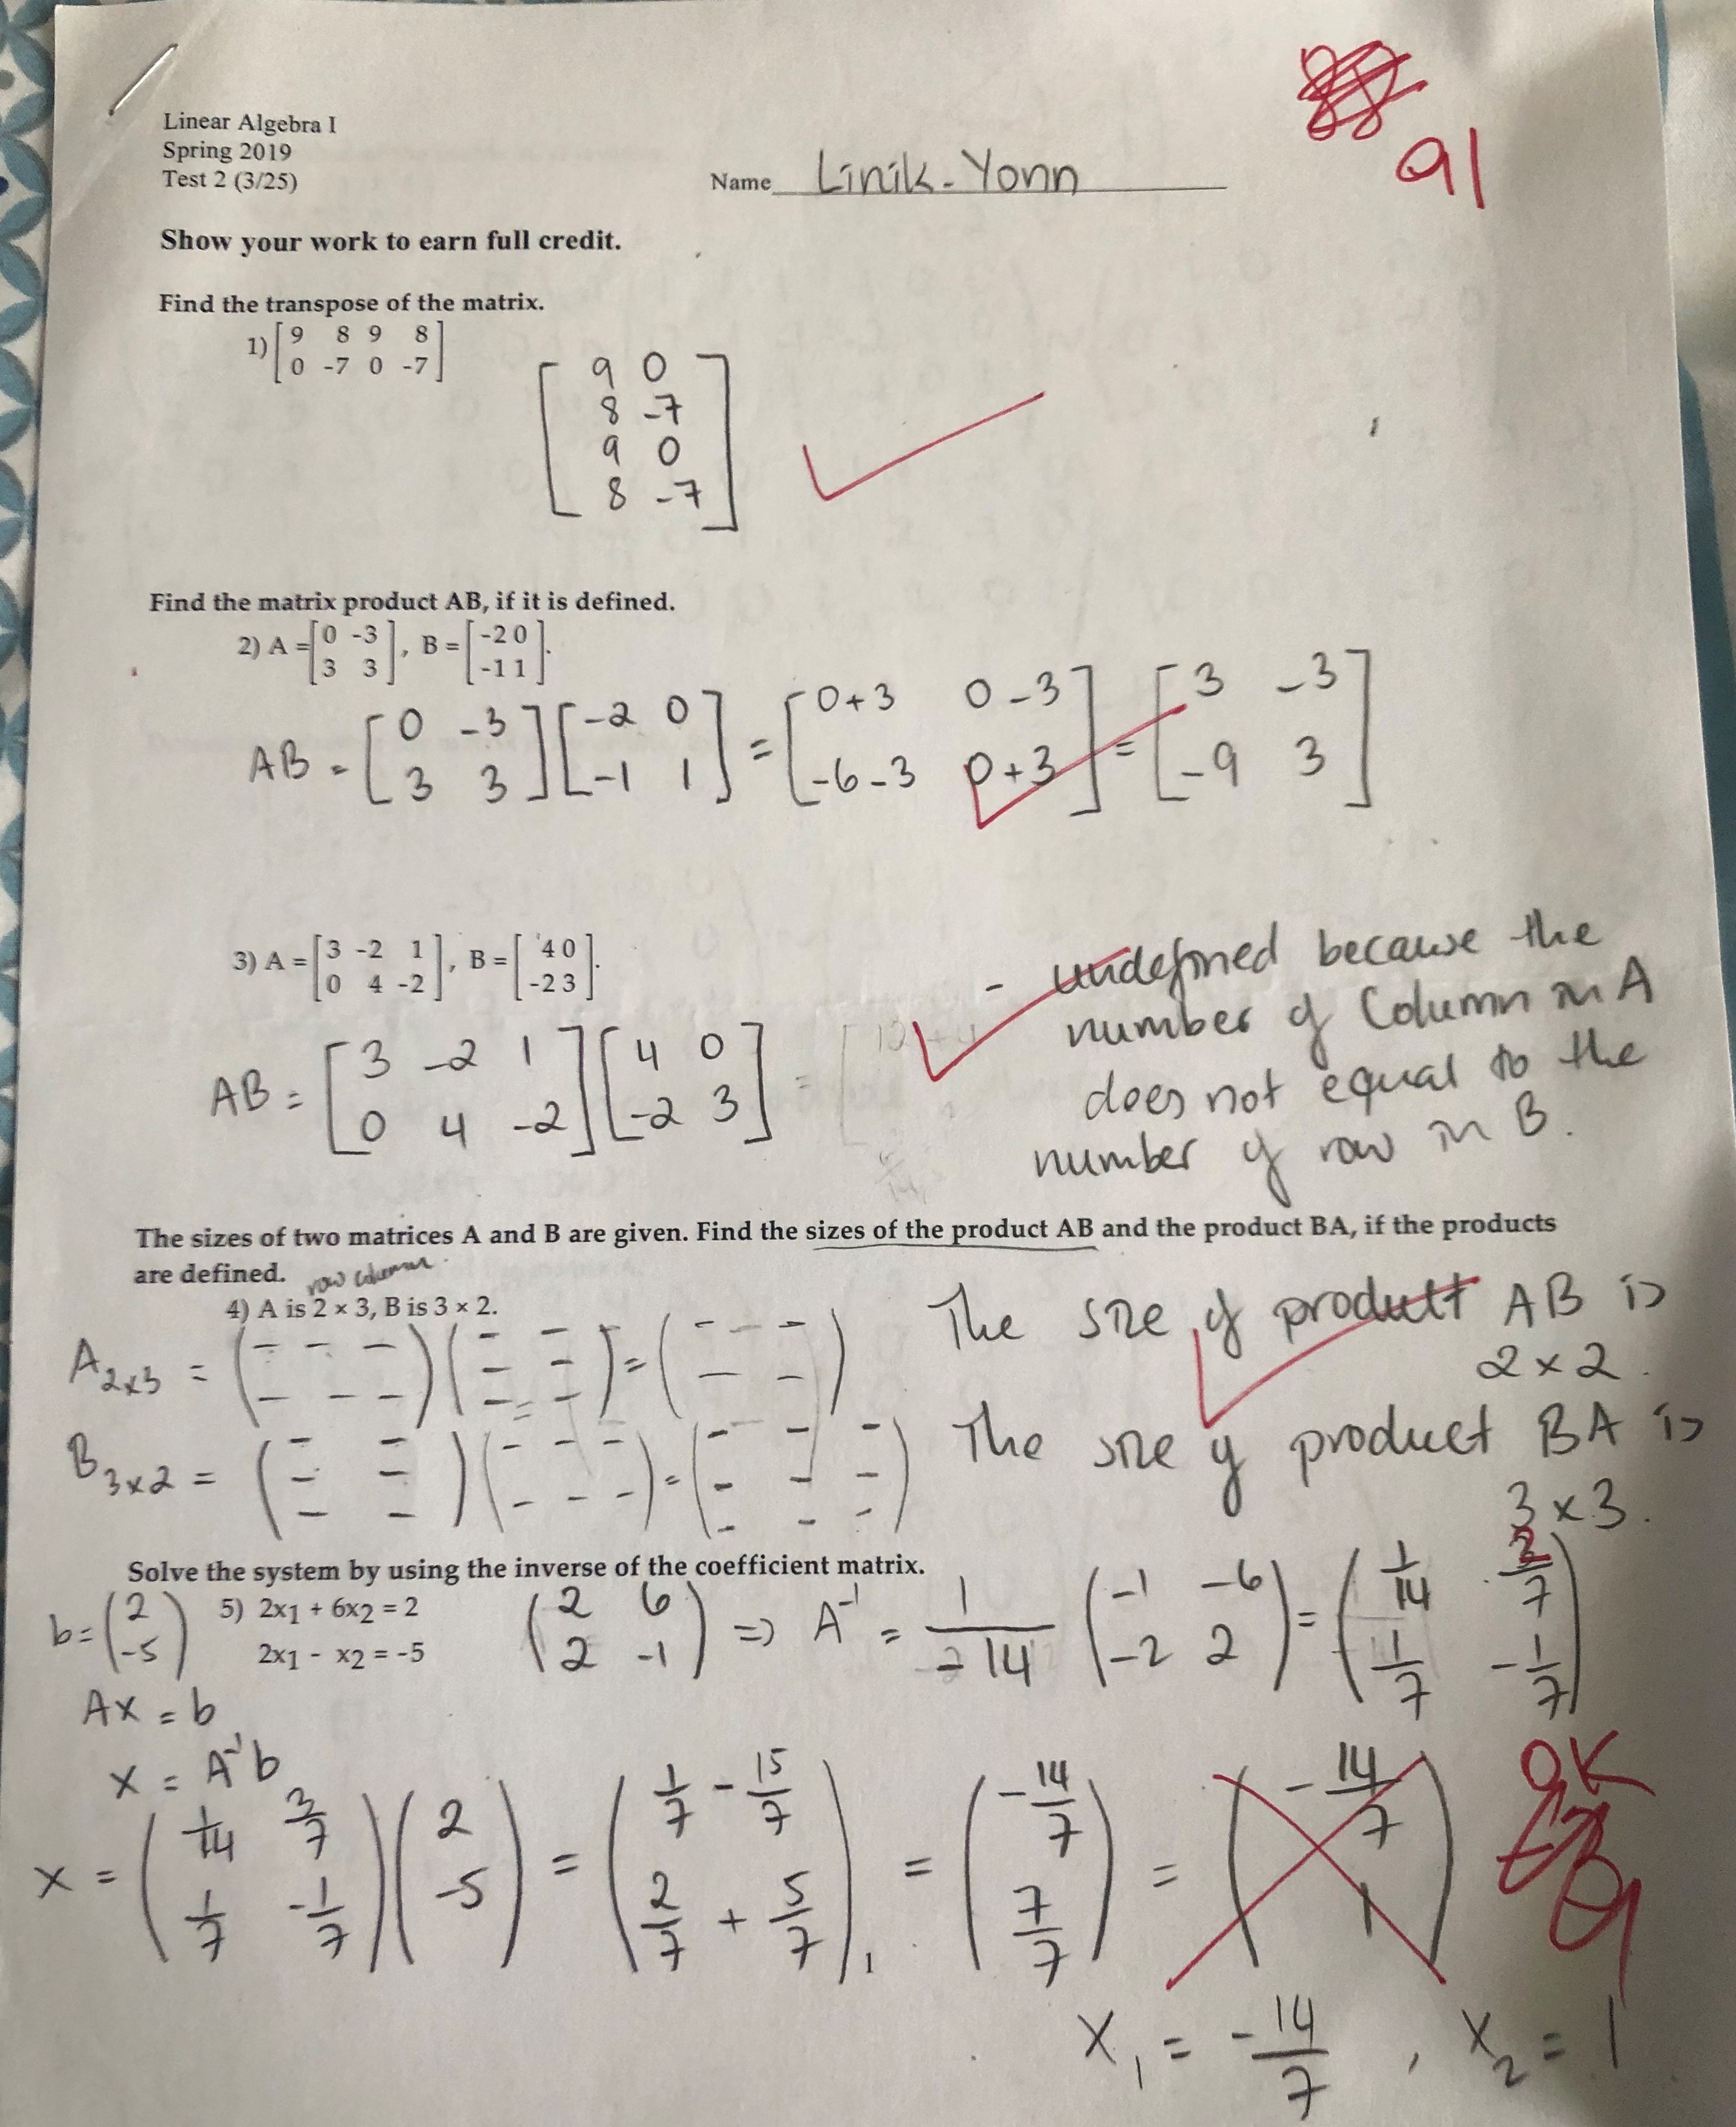 Linear Algebra I
Spring 2019
Test 2 (3/25)
Name Linik-Yonn
91
Show your work to earn full credit.
Find the transpose of the matrix.
1) [9 8 9 8
0 -7 0 -7]
[9 0
8 -7
9 0
8 -7]
Find the matrix product AB, if it is defined.
2) A = [0 -3
3 3], B = [-2 0
-1 1].
AB = [0 -3
3 3] [-2 0
-1 1] = [0+3 0-3
-6-3 0+3] = [3 -3
-9 3]
3) A = [3 -2 1
0 4 -2], B = [4 0
-2 3].
AB = [3 -2 1
0 4 -2] [4 0
-2 3] =
- undefined because the
number of Column in A
does not equal to the
number of row in B.
The sizes of two matrices A and B are given. Find the sizes of the product AB and the product BA, if the products
are defined.
row column
4) A is 2 × 3, B is 3 × 2.
A2x3 = (- - -
- - -) (- -
- -
- -) = (- - -
- -)
The size of product AB is
2 x 2.
B3x2 = (- -
- -
- -) (- - -
- - -) = (- - -
- - -
- - -)
The size of product BA is
3 x 3.
Solve the system by using the inverse of the coefficient matrix.
b = (2
-5)
5) 2x1 + 6x2 = 2
2x1 - x2 = -5
(2 6
2 -1) => A^-1 = 1/-14 (-1 -6
-2 2) = (1/14 3/7
1/7 -1/7)
Ax = b
x = A^-1 b
x = (1/14 3/7
1/7 -1/7) (2
-5) = (1/7 - 15/7
2/7 + 5/7) = (-14/7
7/7) = (-14/7
1)
OK
x1 = -14/7 , x2 = 1